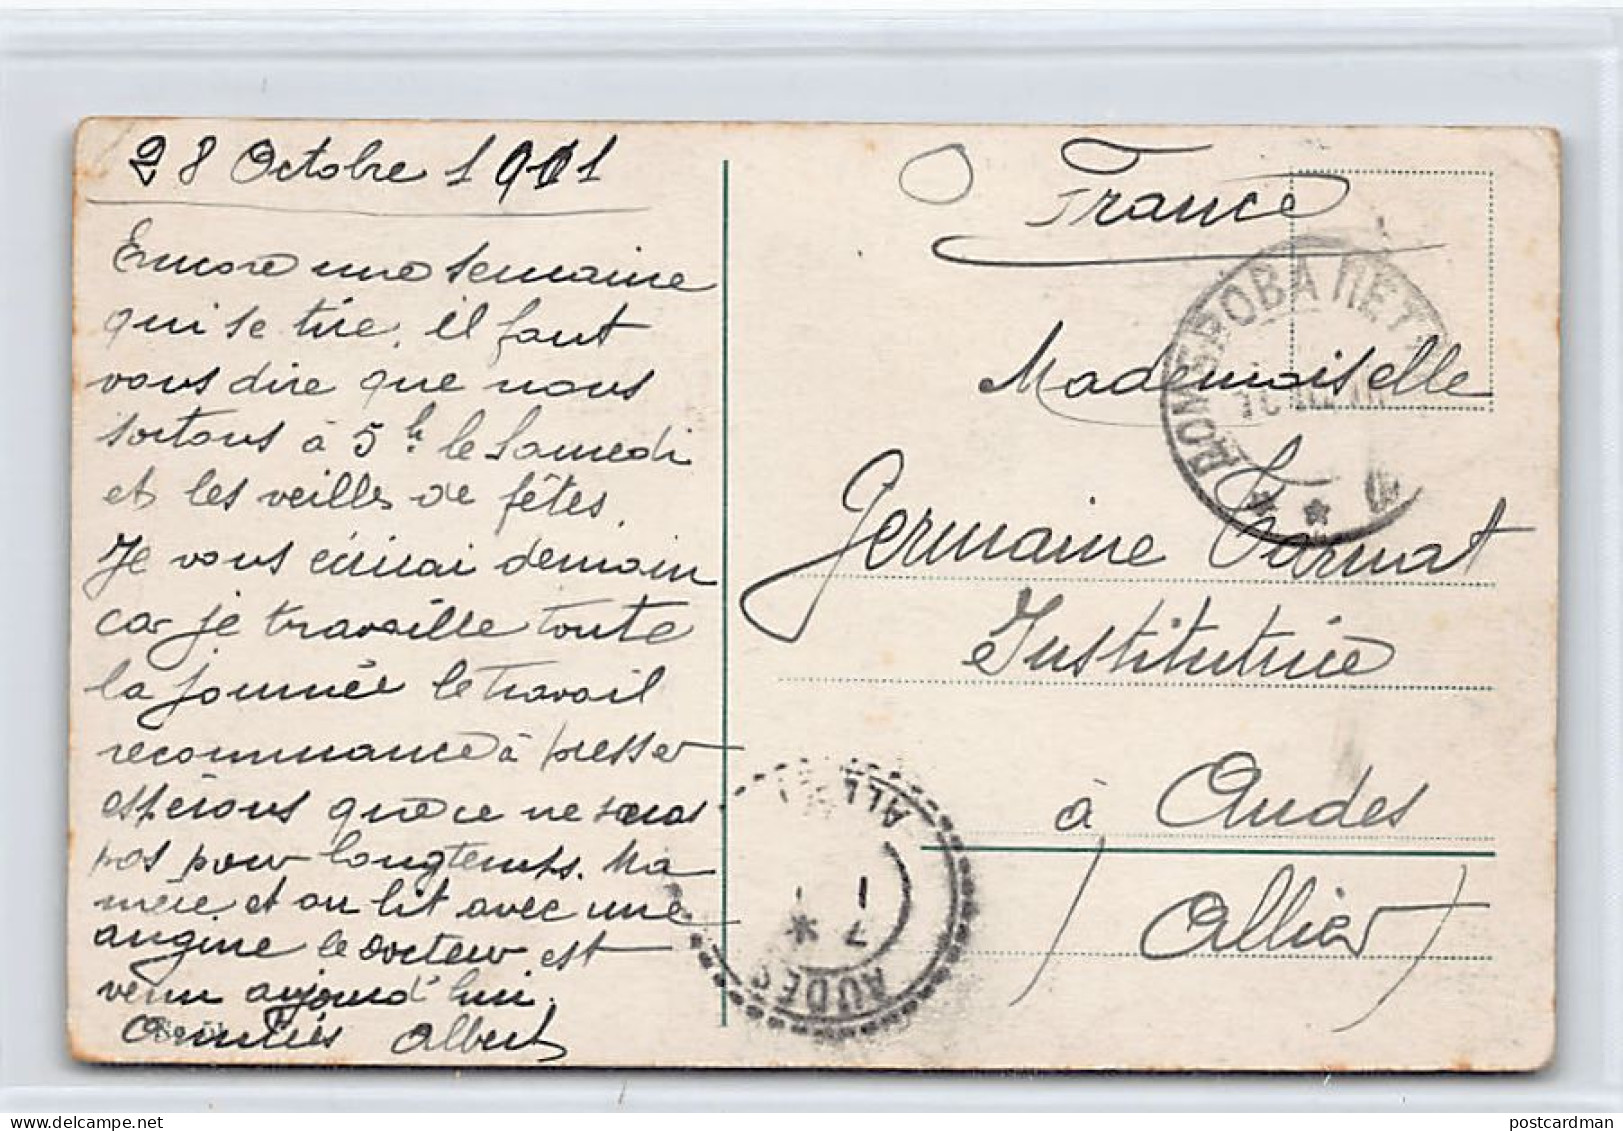 28 Octobre 1911
Encore une semaine
qui se tire, il faut
vous dire que nous
sortons à 5h le Samedi
et les veilles de fêtes.
Je vous écrirai demain
car je travaille toute
la journée le travail
recommance à presser
espérons que ce ne seras
pas pour longtemps. Ma
mère et au lit avec une
angine le docteur est
venu aujourd'hui.
Amitiés Albert
France
Mademoiselle
Germaine
Institutrice
à Audes
(Allier)
ДОМБРОВА ПЕТ
AUDES
ALLIER
7 * 1
1 1
postcardman